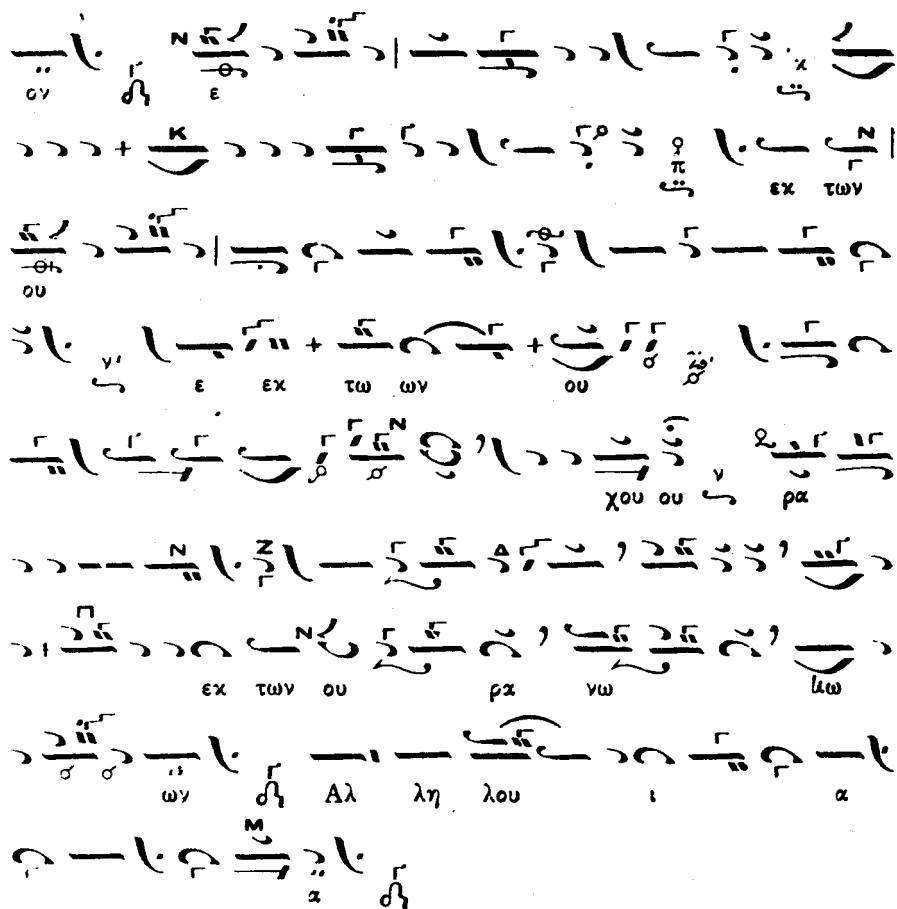 ον ε
εκ των
ου
ε εκ τω ων ου
χου ου ρα
εκ των ου ρα νω μω
ων Αλ λη λου ι α
α